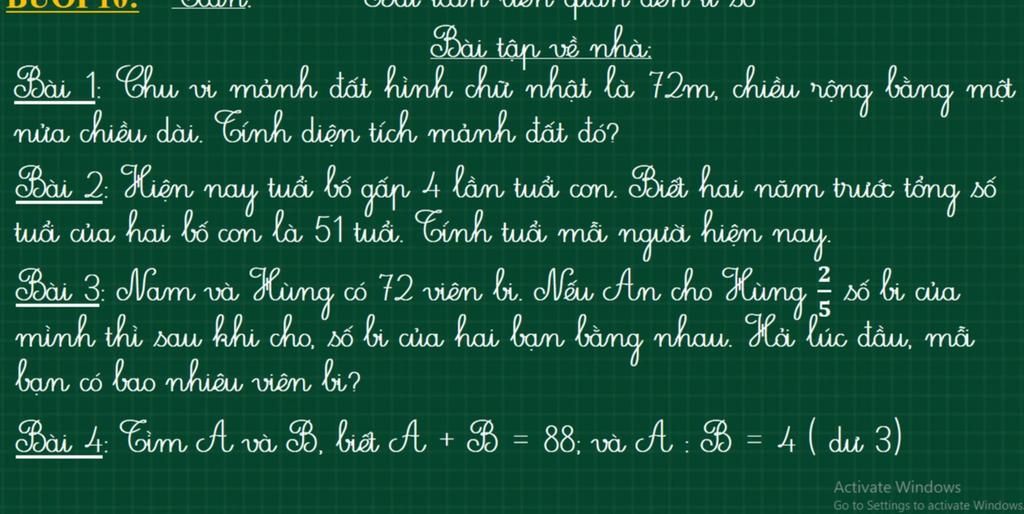 BUỔI 10: Toán: Bài toán liên quan đến tỉ số
Bài tập về nhà:
Bài 1: Chu vi mảnh đất hình chữ nhật là 72m, chiều rộng bằng một
nửa chiều dài. Tính diện tích mảnh đất đó?
Bài 2: Hiện nay tuổi bố gấp 4 lần tuổi con. Biết hai năm trước tổng số
tuổi của hai bố con là 51 tuổi. Tính tuổi mỗi người hiện nay.
Bài 3: Nam và Hùng có 72 viên bi. Nếu An cho Hùng 2/5 số bi của
mình thì sau khi cho, số bi của hai bạn bằng nhau. Hỏi lúc đầu, mỗi
bạn có bao nhiêu viên bi?
Bài 4: Tìm A và B, biết A + B = 88; và A : B = 4 ( dư 3)
Activate Windows
Go to Settings to activate Windows